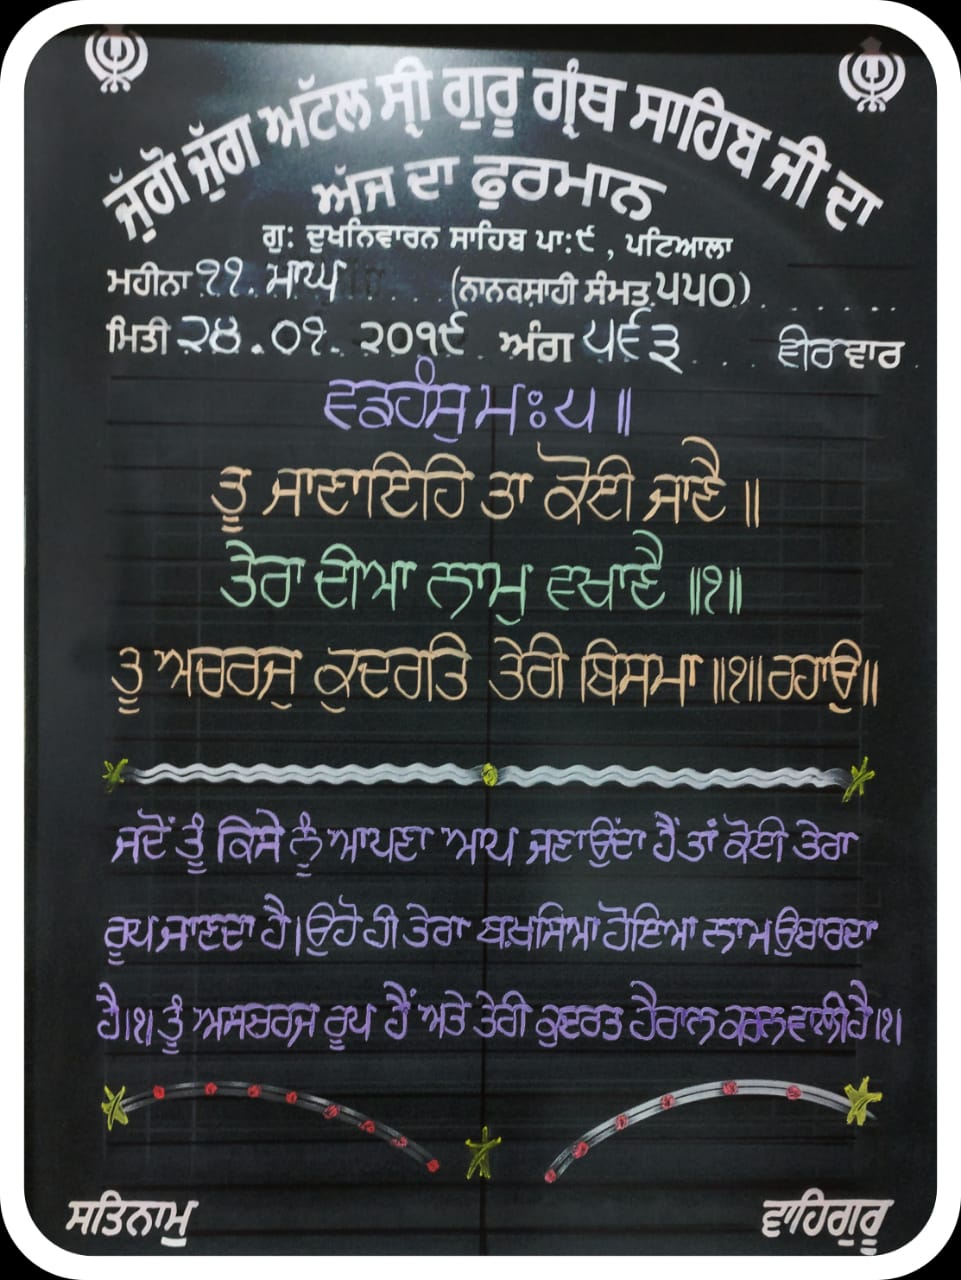 ਜੁੱਗੋ ਜੁੱਗ ਅਟੱਲ ਸ੍ਰੀ ਗੁਰੂ ਗ੍ਰੰਥ ਸਾਹਿਬ ਜੀ ਦਾ
ਅੱਜ ਦਾ ਫੁਰਮਾਨ
ਗੁ: ਦੁਖਨਿਵਾਰਨ ਸਾਹਿਬ ਪਾ:੯, ਪਟਿਆਲਾ
ਮਹੀਨਾ ੧੧ ਮਾਘ (ਨਾਨਕਸ਼ਾਹੀ ਸੰਮਤ ੫੫੦)
ਮਿਤੀ ੨੪.੦੧. ੨੦੧੯ ਅੰਗ ੫੬੩ ਵੀਰਵਾਰ
ਵਡਹੰਸੁ ਮਃ ੫ ॥
ਤੂ ਜਾਣਾਇਹਿ ਤਾ ਕੋਈ ਜਾਣੈ ॥
ਤੇਰਾ ਦੀਆ ਨਾਮੁ ਵਖਾਣੈ ॥੧॥
ਤੂ ਅਚਰਜੁ ਕੁਦਰਤਿ ਤੇਰੀ ਬਿਸਮਾ ॥੧॥ ਰਹਾਉ॥
ਜਦੋਂ ਤੂੰ ਕਿਸੇ ਨੂੰ ਆਪਣਾ ਆਪ ਜਣਾਉਂਦਾ ਹੈਂ ਤਾਂ ਕੋਈ ਤੇਰਾ
ਰੂਪ ਜਾਣਦਾ ਹੈ। ਉਹੋ ਹੀ ਤੇਰਾ ਬਖ਼ਸਿਆ ਹੋਇਆ ਨਾਮ ਉਚਾਰਦਾ
ਹੈ।੧। ਤੂੰ ਅਸਚਰਜ ਰੂਪ ਹੈਂ ਅਤੇ ਤੇਰੀ ਕੁਦਰਤ ਹੈਰਾਨ ਕਰਨ ਵਾਲੀ ਹੈ।੧।
ਸਤਿਨਾਮੁ ਵਾਹਿਗੁਰੂ